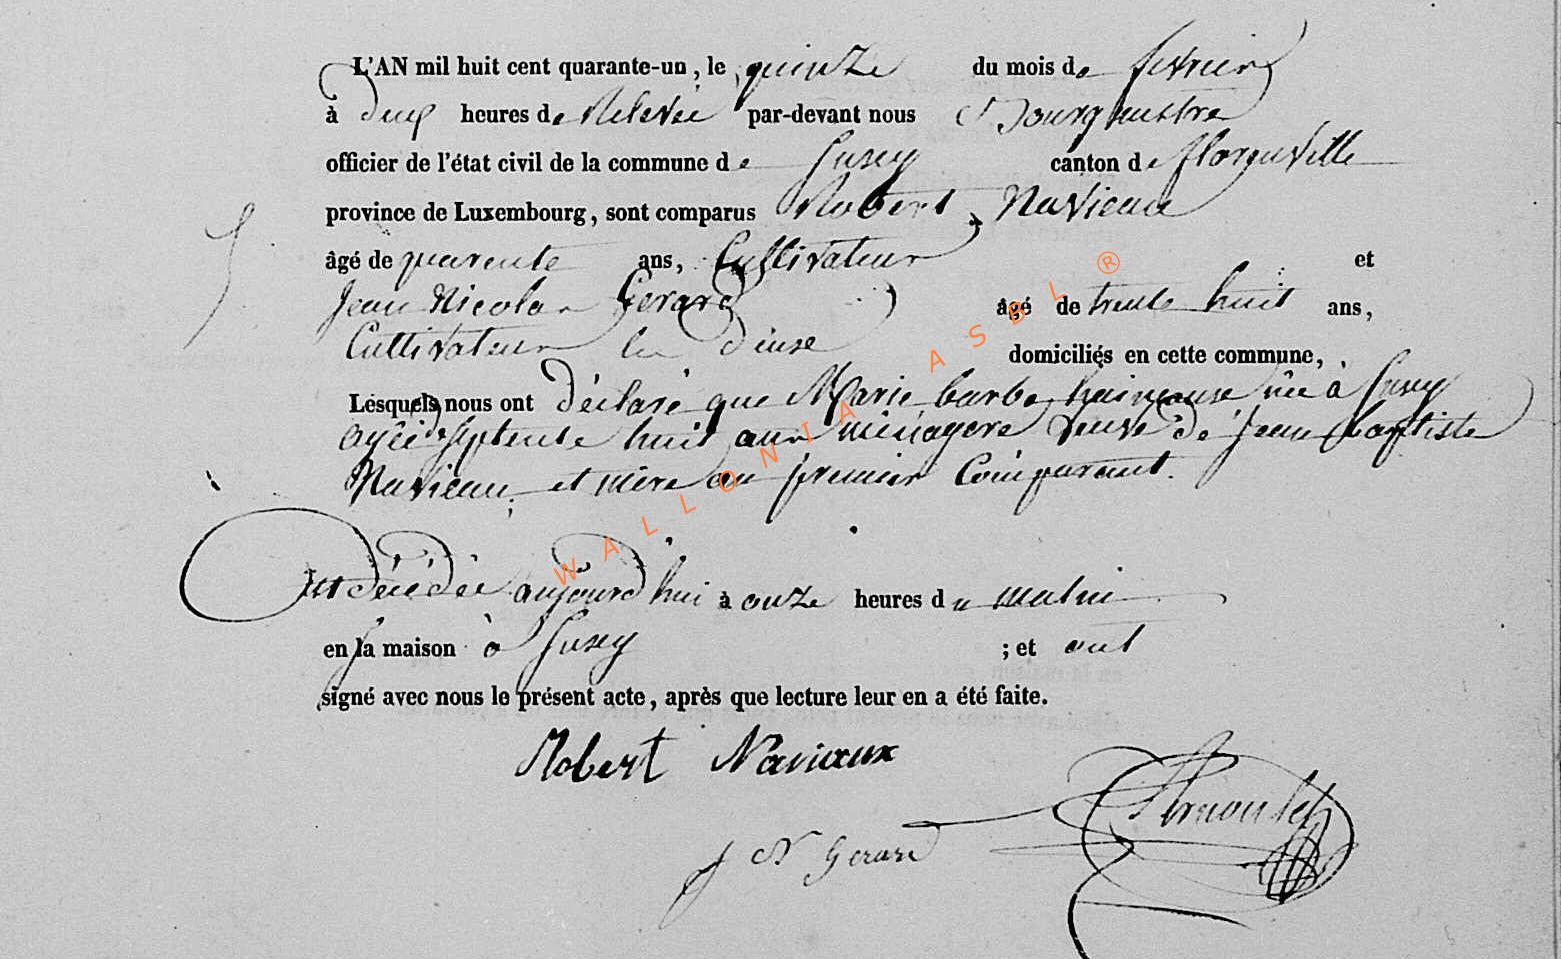 L'AN mil huit cent quarante-un, le quinze du mois de fevrier
à deux heures de Relevée par-devant nous Bourgmestre
officier de l'état civil de la commune de Suxy canton de florenville
province de Luxembourg, sont comparus Robert Navieau
âgé de quarente ans, Cultivateur et
Jean Nicolas Gerard âgé de trente huit ans,
Cultivateur les deux domiciliés en cette commune,
Lesquels nous ont déclaré que Marie barbe née à Suxy
agée de septente huit ans ménagere veuve de Jean baptiste
Navieau et mère du premier Comparant.
est décédée aujourd'hui à onze heures du matin
en sa maison à Suxy ; et ont
signé avec nous le présent acte, après que lecture leur en a été faite.
Robert Naviaux
J N Gerard
WALLONIA ASBL ®